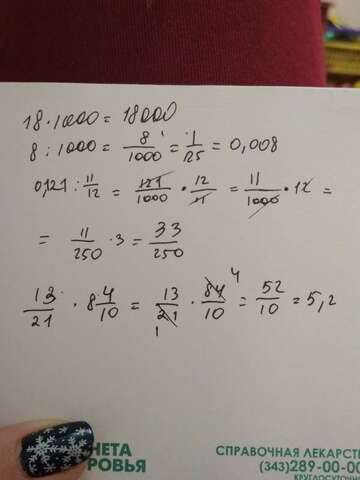 18·1000 = 18000
8 : 1000 = 8/1000 = 1/125 = 0,008
0,121 : 11/12 = 121/1000 · 12/11 = 11/1000 · 12 =
= 11/250 · 3 = 33/250
13/21 · 8 4/10 = 13/21 · 84/10 = 52/10 = 5,2
НЕТА
РОВЬЯ
СПРАВОЧНАЯ ЛЕКАРСТВ
(343)289-00-00
КРУГЛОСУТОЧН